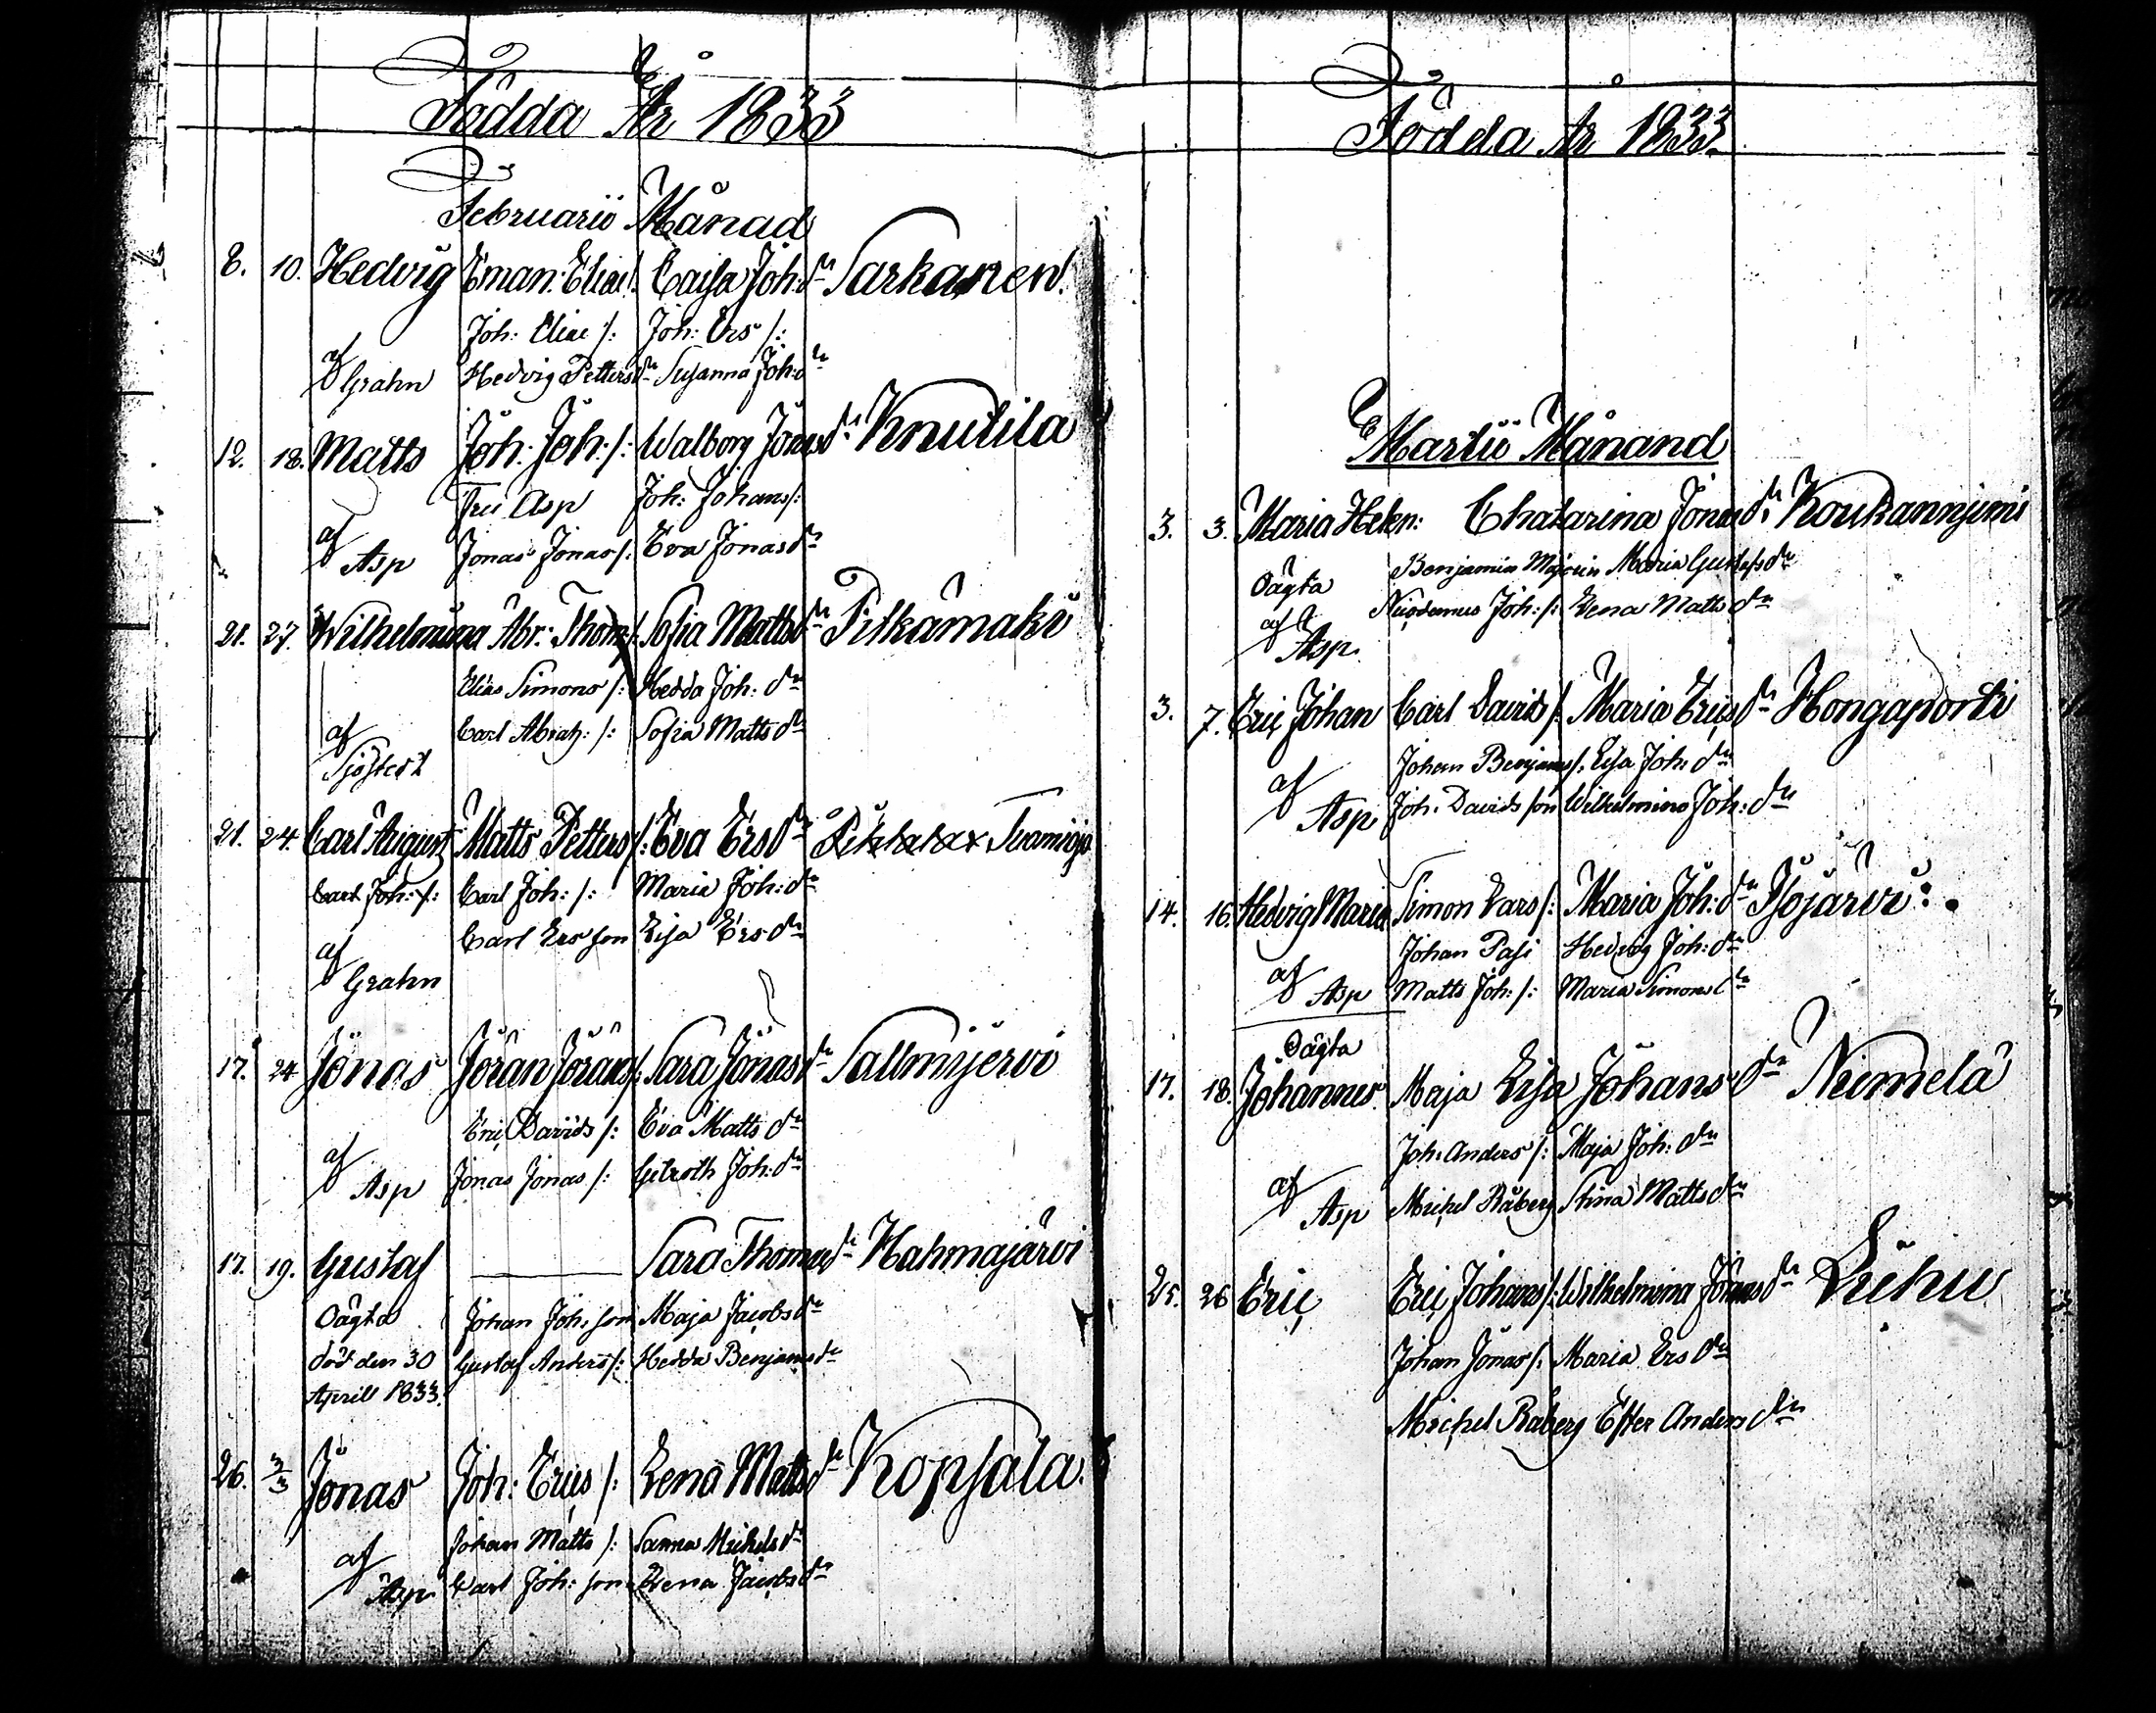 Födda År 1833
Februarii Månad
8. 10. Hedvig Eman: Eliae/: Caisa Joh: dr Sarkanen.
Joh: Eliae /: Joh: Ers /:
af Grahn Hedvig Petters dr Susanna Joh: dr
12. 18. Matts Joh: Joh: /: Walborg Jonas dr Knutila
Eric Asp Joh: Johans/:
af Asp Jonas Jonas/: Eva Jonas dr
21. 27. Wilhelmina Abr: Thom/: Sofia Matts dr Pitkämäki
Elias Simons /: Hedda Joh: dr
af Carl Abrah: /: Sofia Matts dr
Sjöstedt
21. 24. Carl August Matts Petters/: Eva Ers dr
Carl Joh: /: Carl Joh: /: Maria Joh: dr
af Carl Ers son Lisa Ers dr
Grahn
17. 24 Jonas Jöran Jörans/: Sara Jonas dr Sallmijervi
Eric Davids /: Eva Matts dr
af Asp Jonas Jonas /: Joh: dr
17. 19. Gustaf Sara Thomas dr Hahmajärvi
Oägta Johan Joh: son Maja Jacobs dr
död den 30 Gustaf Anders/: Hedda Benjams dr
Aprill 1833.
26. 3/3 Jonas Joh: Erics /: Lena Matts dr Kopsala.
Johan Matts /: Sanna Michels dr
af Asp Carl Joh: son Lena Jacobs dr
Födda År 1833.
Martii Månand
3. 3. Maria Helen: Chatarina Jonas dr Koukannjemi
Oägta Benjamin Majorin Maria Gustafs dr
af Asp. Nicodemus Joh: /: Lena Matts dr
3. 7. Eric Johan Carl Davids /: Maria Erics dr Hongaporti
Johan Benjams/: Lisa Joh: dr
af Asp Joh: Davids son Wilhelmina Joh: dr
14. 16. Hedvig Maria Simon Lars /: Maria Joh: dr Isojärvi:.
Johan Pasi Hedvig Joh: dr
af Asp Matts Joh: /: Maria Simons dr
Oägta
17. 18. Johannes Maja Lisa Johans dr Niemelä
Joh: Anders /: Maja Joh: dr
af Asp Michel Råberg Stina Matts dr
25. 26 Eric Eric Johans/: Wilhelmina Jonas dr
Johan Jonas /: Maria Ers dr
Michel Råberg Ester Anders dr